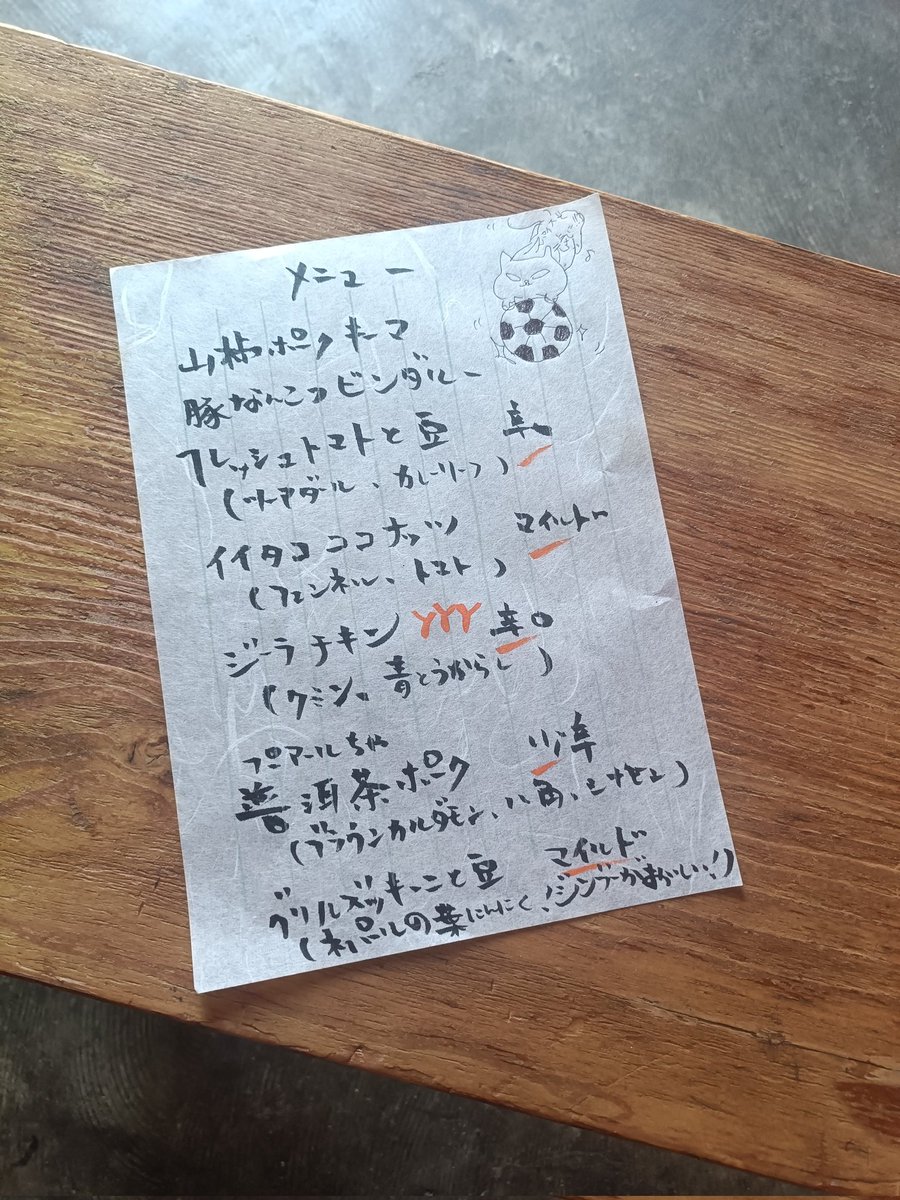 メニュー
山椒ポークキーマ
豚なんこつビンダルー
フレッシュトマトと豆 辛
(ツールダール、カレーリーフ)
イイダコココナッツ マイルド
(フェンネル、トマト)
ジーラチキン 辛口
(クミン、青とうがらし)
プーアールちゃ
普洱茶ポーク 小辛
(ブラウンカルダモン、八角、シナモン)
グリルズッキーニと豆 マイルド
(ネパールの葉にんにく、ジンブーがばかしい!)